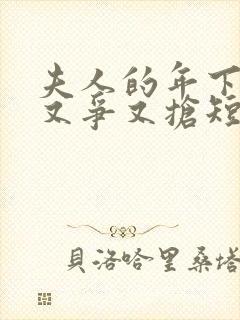 夫人的年下
又爭又搶短
貝洛哈里桑塔